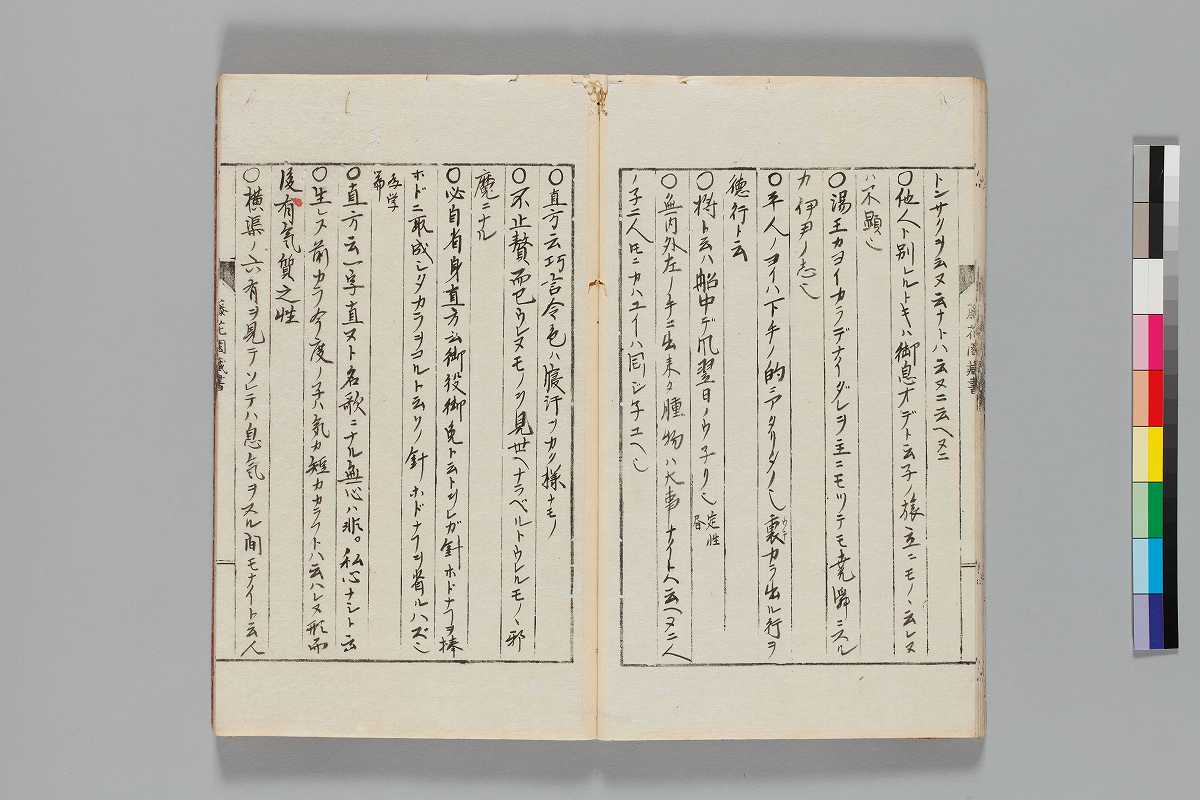 トンサクヲ云ヌ又云ナトハ云ヌニ云ヘヌニ
〇他人ト別レルトキハ御息オデト云子ノ旅立ニモノヽ云レヌ
ハ不顕也
〇湯王カヨイカラデナイダレヲ主ニモツテモ堯舜ニスル
カ伊尹ノ志也
〇平人ノヨイハ下手ノ的ニアタリタノ也裏カラ出ル行ヲ
徳行ト云
〇樽ト云ハ船中デ爪翌日ノウ子リ也 定性
〇無内外左ノ手ニ出来タ腫物ハ大事ナイトハ云ヘヌ二人
ノ子二人𪜈ニカハユイハ同シ子ユヘ也
〇直方云巧言令色ハ寝汗ヲカク様ナモノ
〇不止贅而已ウレヌモノヲ見世ヘナラベルトウレルモノヽ邪
魔ニナル
〇必自省身直方云御役御免ト云トソレガ針ホドナフヲ棒
ホドニ取成シタカラヲコルト云ソノ針ホドナフヲ省ルハズ也
為学
〇直方云一字直スト名歌ニナル無心ハ非。私心ナシト云
〇生レヌ前カラ今度ノ子ハ気カ短カカラフトハ云ハレヌ形而
後有気質之性
〇横渠ノ六有ヲ見テソレテハ息気ヲスル間モナイト云人
藤花園蔵書
藤花園蔵書